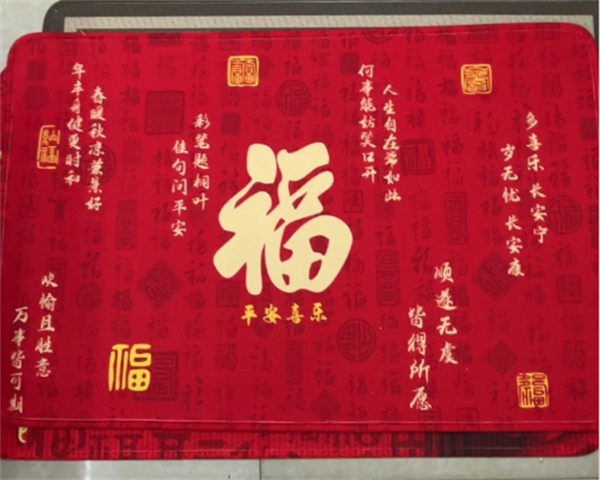 春暖秋凉景好
年丰身健更时和
彩笔题桐叶
佳句问平安
人生自在常如此
何事能妨笑口开
多喜乐 长安宁
岁无忧 长安康
福
平安喜乐
顺遂无虞
皆得所愿
欢愉且胜意
万事皆可期
福